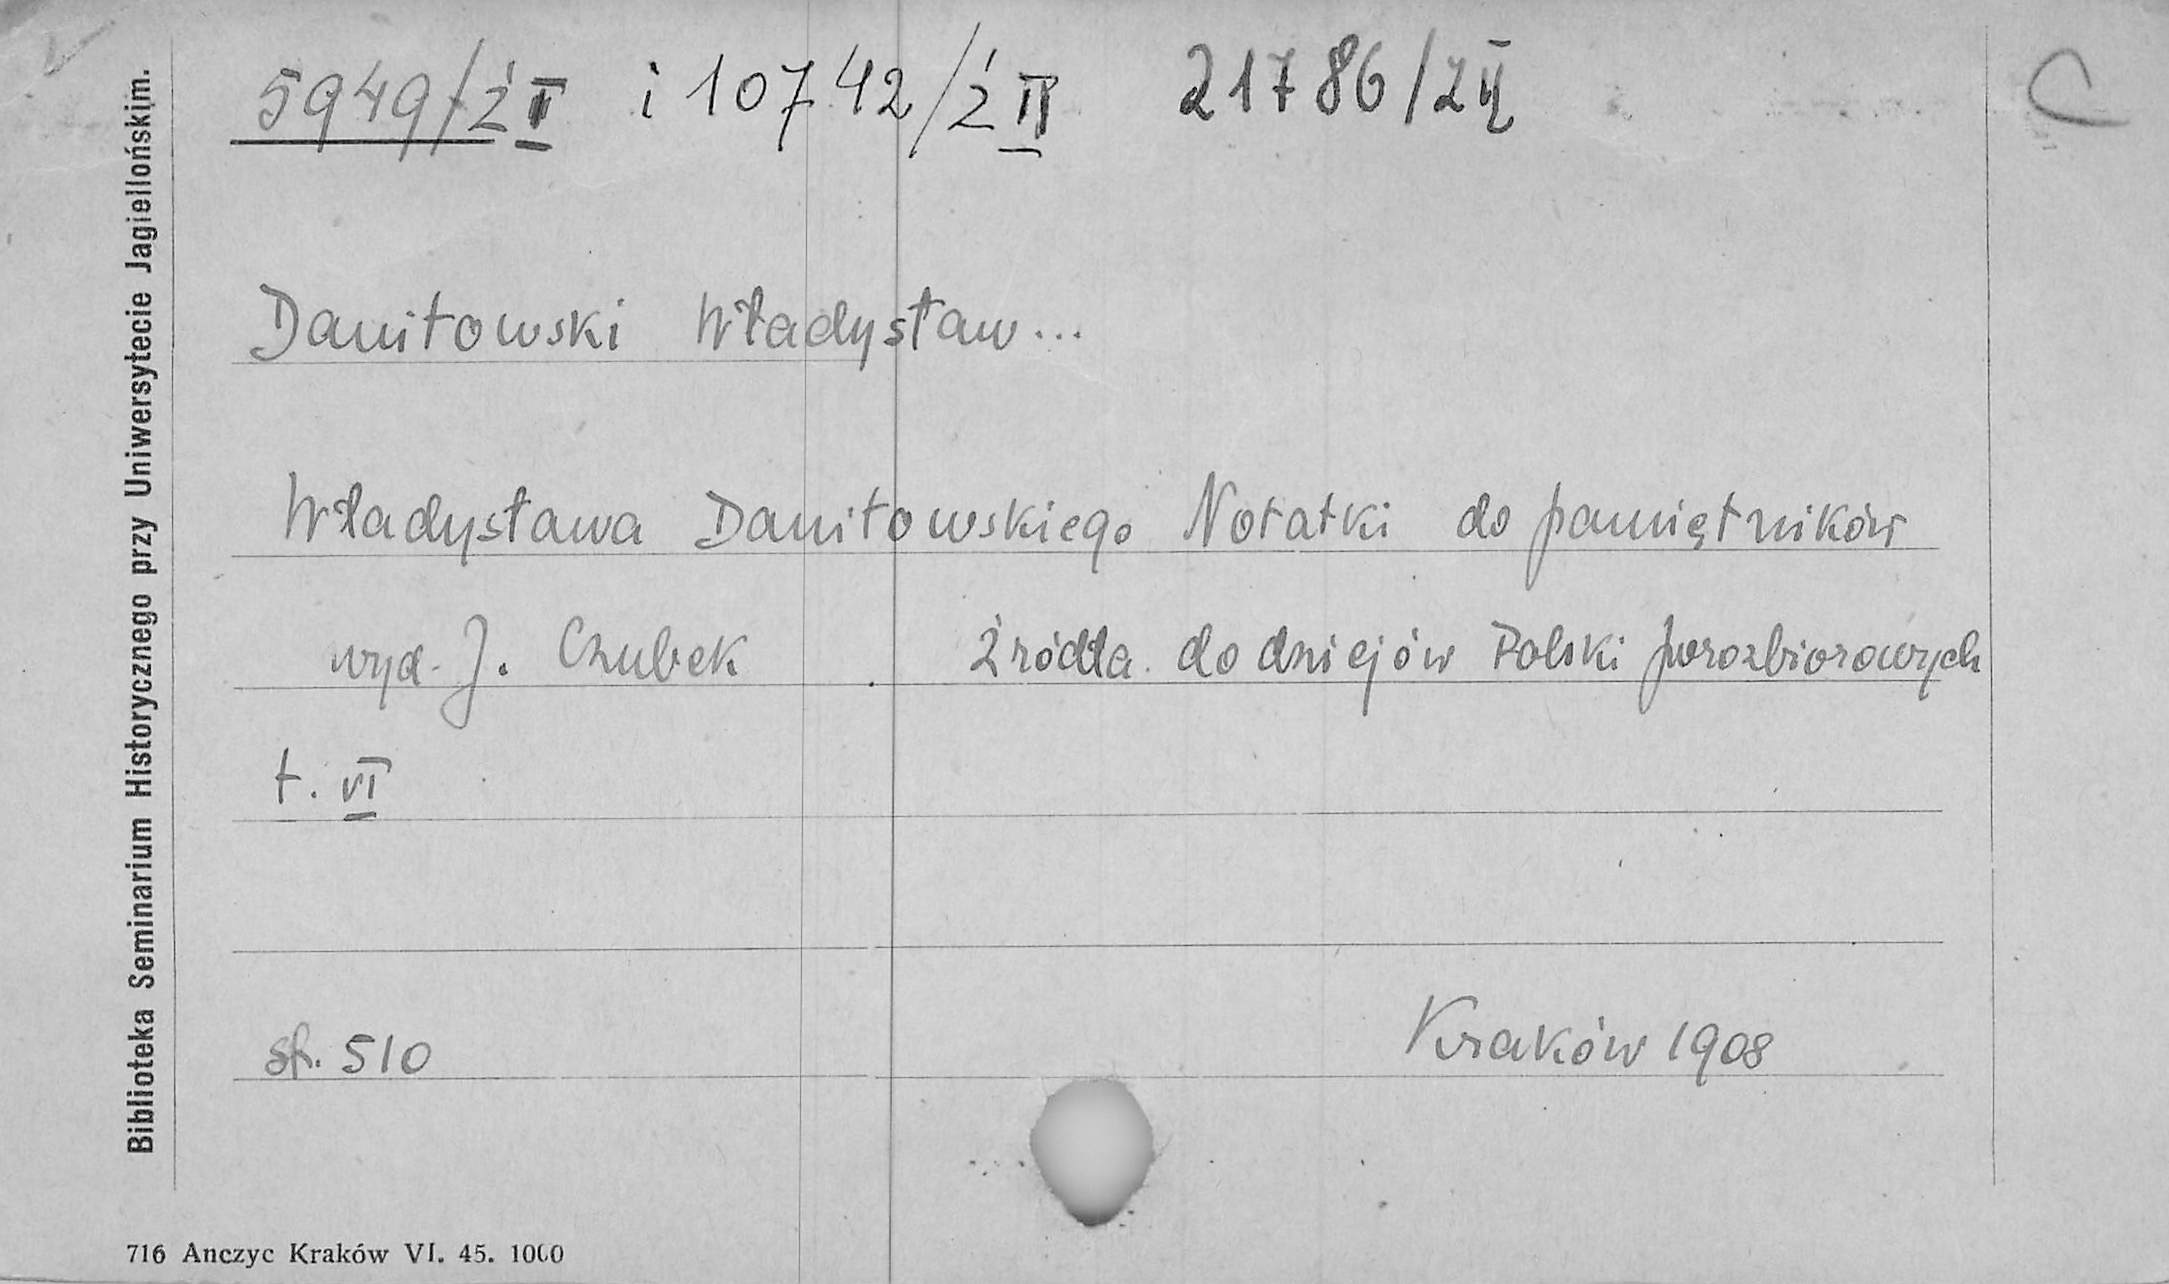 5949/ż II i 10742/ż II 21786/ż II
C
Daniłowski Władysław...
Władysława Daniłowskiego Notatki do pamiętników
wyd. J. Czubek . Źródła do dziejów Polski porozbiorowych
t. VI
str. 510 Kraków 1908
Biblioteka Seminarium Historycznego przy Uniwersytecie Jagiellońskim.
716 Anczyc Kraków VI. 45. 1000